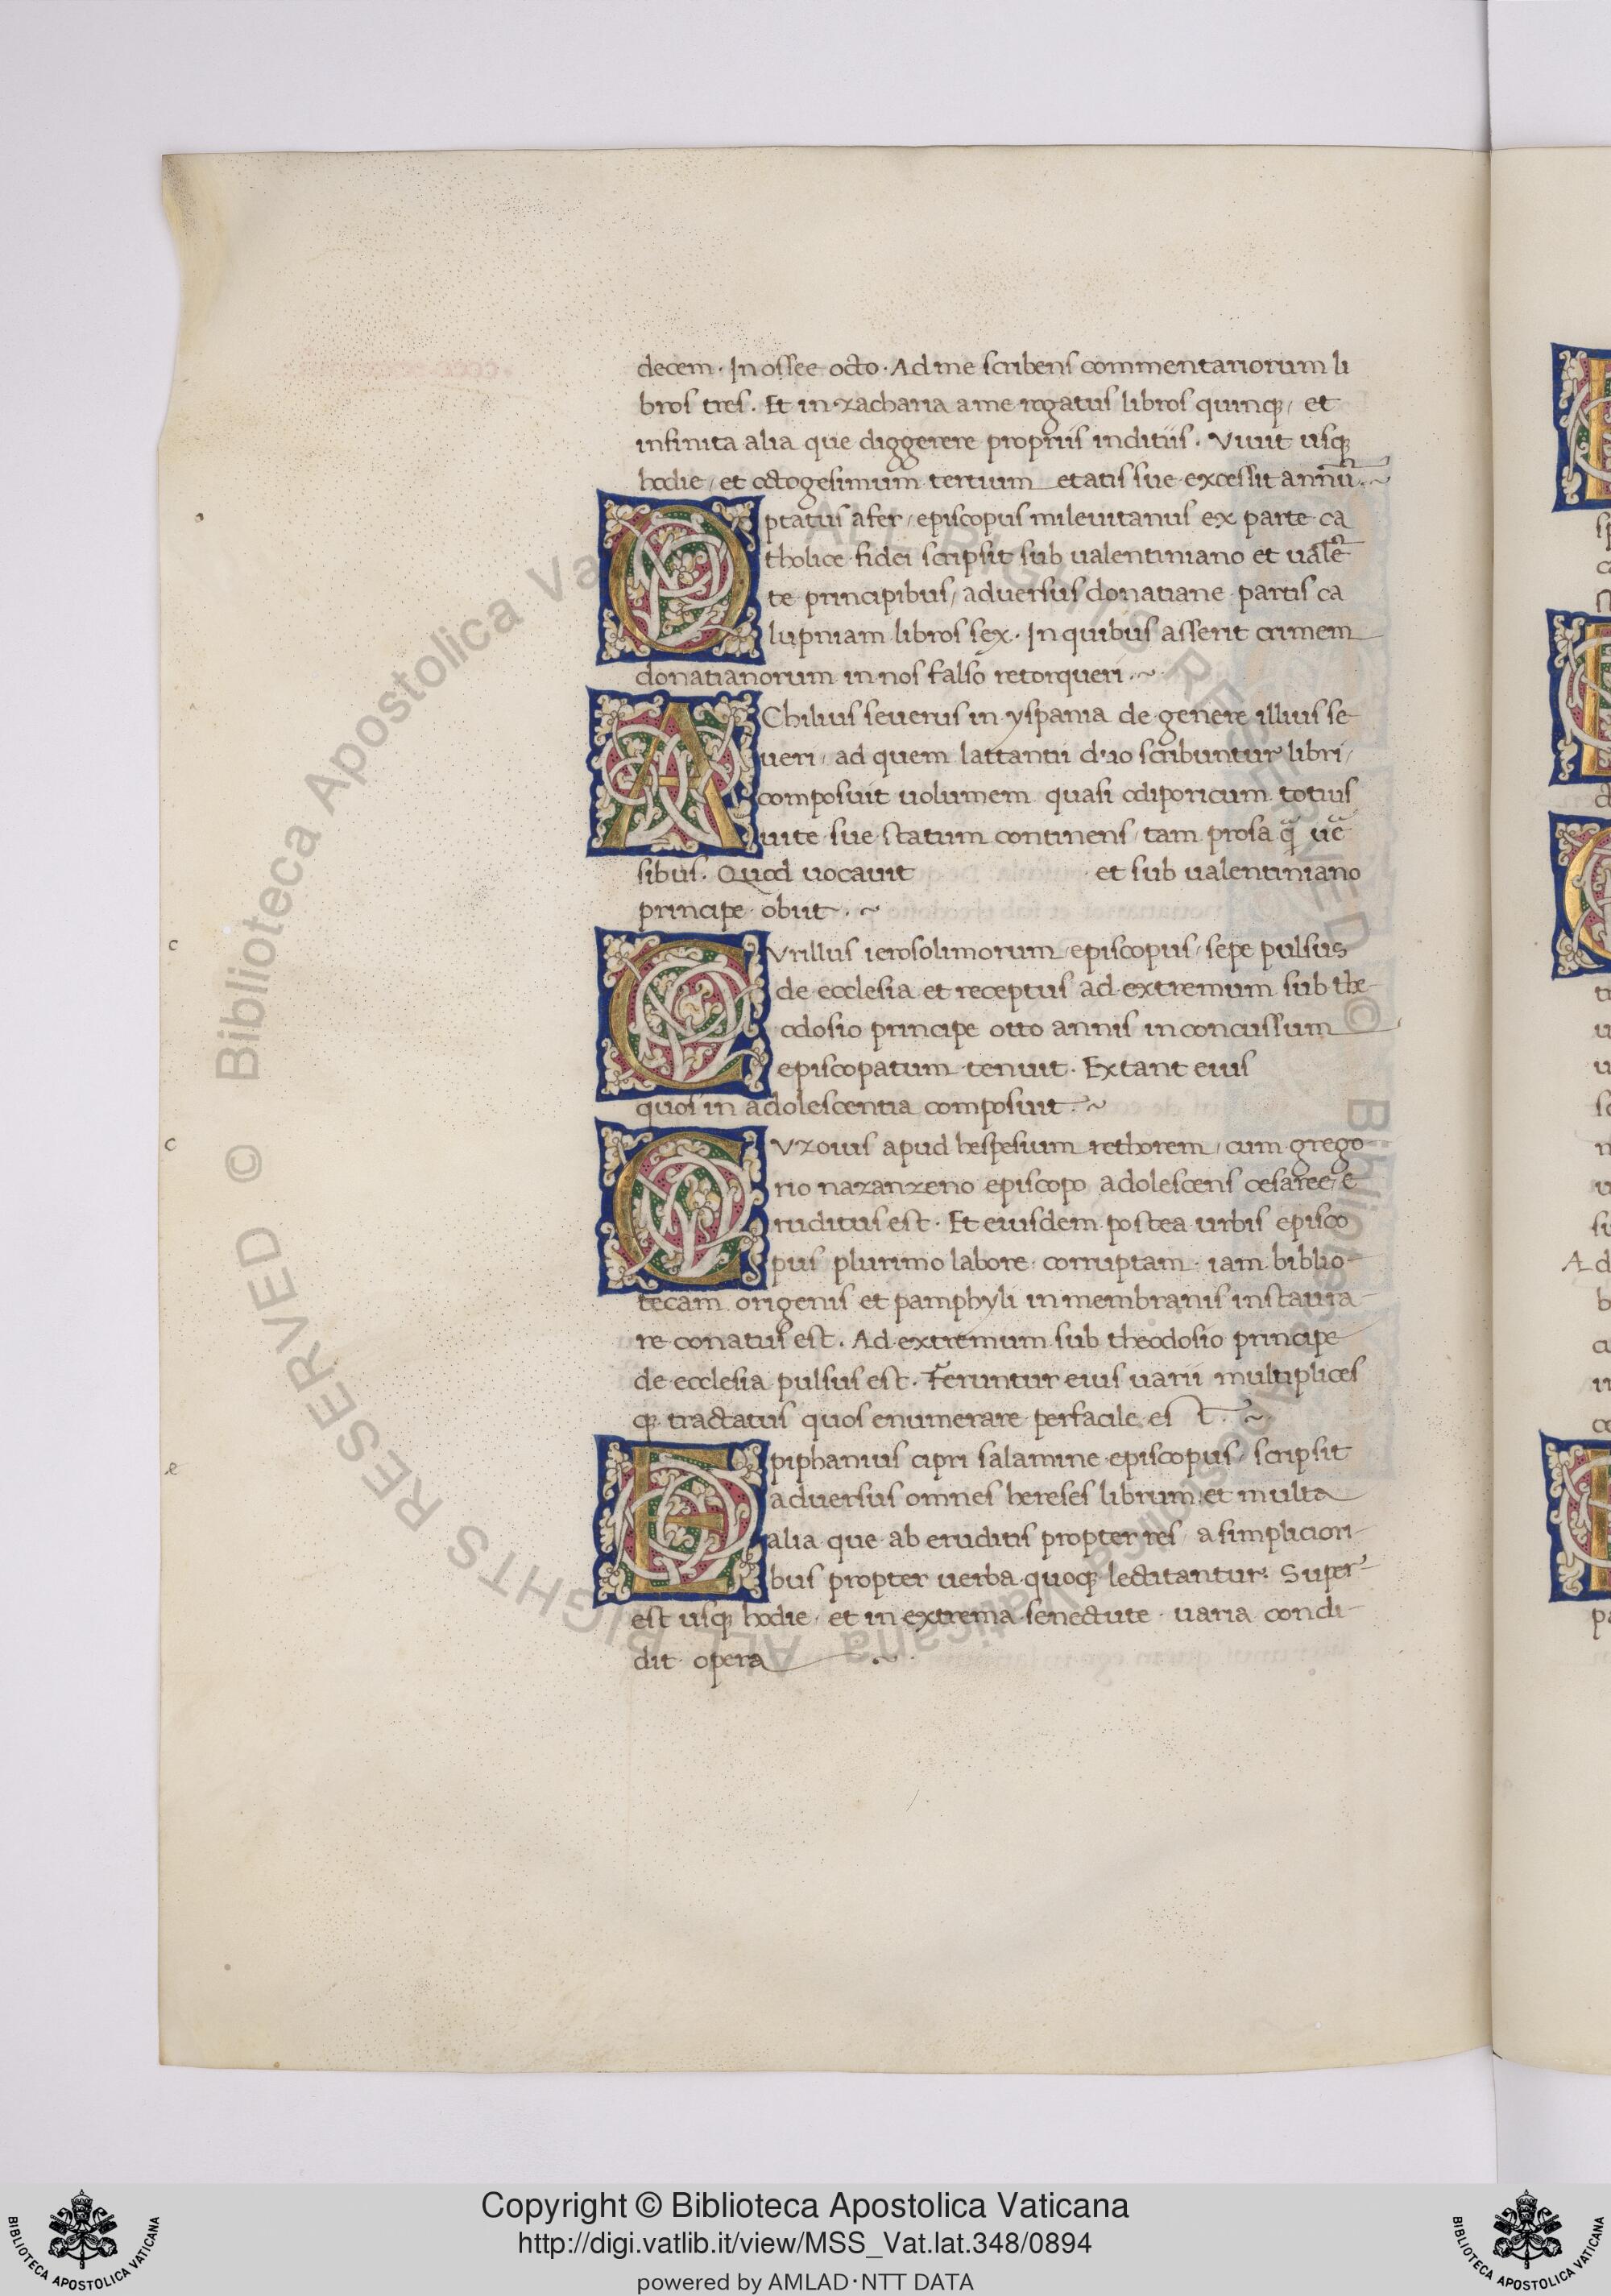 decem. In ossee octo. Ad me scribens commentariorum li
bros tres. Et in zacharia a me rogatus libros quinq; et
infinita alia que diggerere propriis inditiis. Vivit usq;
hodie, et octogesimum tertium etatis sue excessit annũ. ~
Optatus afer, episcopus milevitanus ex parte ca
tholice fidei scripsit sub ualentiniano et ualẽ
te principibus, aduersus donatiane partis ca
lupniam libros sex. In quibus asserit crimem
donatianorum in nos falso retorqueri. ~
AChilius seuerus in yspania de genere illius se
ueri, ad quem lattantii duo scribuntur libri,
composuit uolumem quasi odiporicum totius
uite sue statum continens, tam prosa q̃ ue͛
sibus. Quod uocauit et sub ualentiniano
principe obiit. ~
c
CVrillus ierosolimorum episcopus, sepe pulsus
de ecclesia et receptus ad extremum sub the-
odosio principe otto annis inconcussum
episcopatum tenuit. Extant eius
quos in adolescentia composuit. ~
c
CVzoius apud hespesium rethorem, cum grego
rio nazanzeno episcopo adolescens cesaree, e
ruditus est. Et eiusdem postea urbis episco
pus plurimo labore corruptam iam biblio-
tecam origenis et pamphyli in membranis instaura-
re conatus est. Ad extremum sub theodosio principe
de ecclesia pulsus est. Feruntur eius uarii multiplices
q; tractatus quos enumerare perfacile est. ~
e
Epiphanius cipri salamine episcopus, scripsit
aduersus omnes hereses librum et multa
alia que ab eruditis propter res, a simpliciori-
bus propter uerba quoq; lectitantur. Super-
est usq; hodie et in extrema senectute uaria condi-
dit opera ~
Ad
Copyright © Biblioteca Apostolica Vaticana
http://digi.vatlib.it/view/MSS_Vat.lat.348/0894
powered by AMLAD·NTT DATA
BIBLIOTECA APOSTOLICA VATICANA
BIBLIOTECA APOSTOLICA VATICANA
© Biblioteca Apostolica Vaticana ALL RIGHTS RESERVED